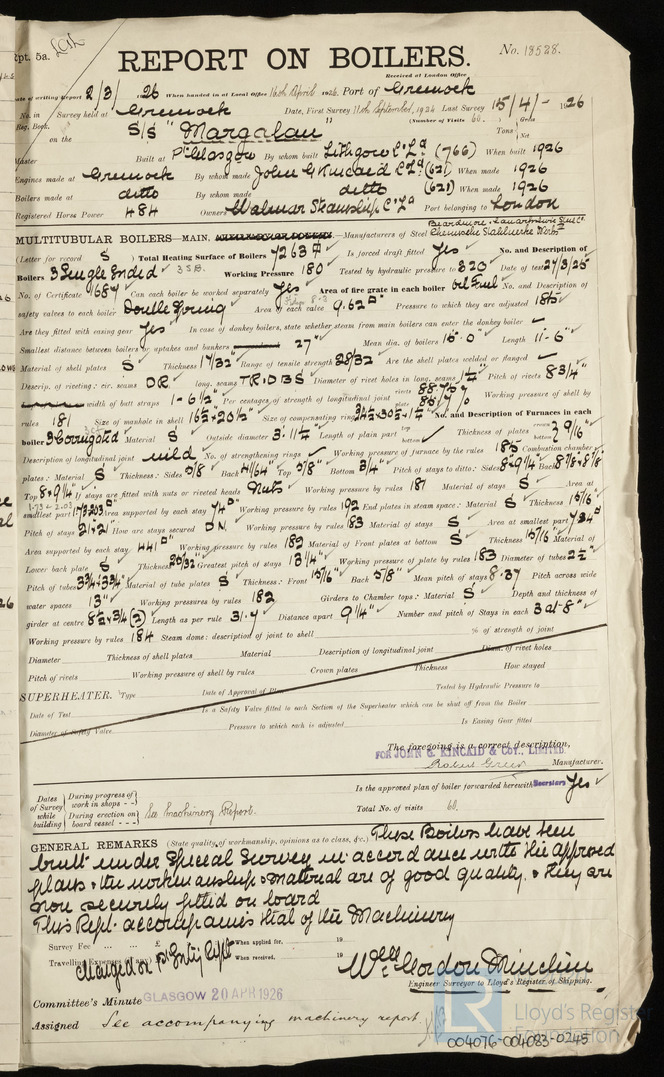 Rpt. 5a.
REPORT ON BOILERS.
No. 18528.
Received at London Office
Date of writing Report 2/3/1926 When handed in at Local Office 16th April 1926. Port of Greenock
No. in Survey held at Greenock Date, First Survey 11th September, 1924 Last Survey 15/4/- 1926
Reg. Book. (Number of Visits 60.) Gross
on the S/S "Margalau" Tons Net
Master Built at Pt Glasgow By whom built Lithgow Co Ld (766) When built 1926
Engines made at Greenock By whom made John G Kincaid Co Ld (621) When made 1926
Boilers made at ditto By whom made ditto (621) When made 1926
Registered Horse Power 484 Owners Walmar Steamship Co Ld Port belonging to London
MULTITUBULAR BOILERS—MAIN, Manufacturers of Steel
(Letter for record S) Total Heating Surface of Boilers 7263 Is forced draft fitted Yes No. and Description of
Boilers 3 Single Ended 3 S.B. Working Pressure 180 Tested by hydraulic pressure to 320 Date of test
No. of Certificate 1687 Can each boiler be worked separately Yes Area of fire grate in each boiler oil fuel No. and Description of
safety valves to each boiler Double Spring Area of each valve 9.62 Pressure to which they are adjusted 185
Are they fitted with easing gear Yes In case of donkey boilers, state whether steam from main boilers can enter the donkey boiler
Smallest distance between boilers or uptakes and bunkers 27" Mean dia. of boilers 15-0" Length 11-6"
Material of shell plates S Thickness 1 7/32" Range of tensile strength 28/32 Are the shell plates welded or flanged
Descrip. of riveting: cir. seams D R long. seams T.R.D.B.S Diameter of rivet holes in long. seams 1 1/4" Pitch of rivets 8 3/4"
width of butt straps 1-6 1/2" Per centages of strength of longitudinal joint rivets plate Working pressure of shell by
rules 181 Size of manhole in shell 16 1/2 x 20 1/2" Size of compensating ring No. and Description of Furnaces in each
boiler 3 Corrugated Material S Outside diameter 3'-11 1/4" Length of plain part top bottom Thickness of plates crown bottom 9/16"
Description of longitudinal joint weld No. of strengthening rings Working pressure of furnace by the rules 185 Combustion chamber
plates: Material S Thickness: Sides 5/8 Back 41/64" Top 5/8" Bottom 3/4" Pitch of stays to ditto: Sides Back
Top 8 x 9 1/4" If stays are fitted with nuts or riveted heads Nuts Working pressure by rules 187 Material of stays S Area at
smallest part Area supported by each stay 74 Working pressure by rules 192 End plates in steam space: Material S Thickness 15/16"
Pitch of stays 21 x 21" How are stays secured D.N. Working pressure by rules 183 Material of stays S Area at smallest part
Area supported by each stay 441 Working pressure by rules 182 Material of Front plates at bottom S Thickness 15/16" Material of
Lower back plate S Thickness 29/32" Greatest pitch of stays 13 1/4" Working pressure of plate by rules 183 Diameter of tubes 2 1/2"
Pitch of tubes 3 3/4 x 3 3/4" Material of tube plates S Thickness: Front 15/16" Back 5/8" Mean pitch of stays 8.37 Pitch across wide
water spaces 13" Working pressures by rules 182 Girders to Chamber tops: Material S Depth and thickness of
girder at centre 8 1/2 x 3/4 (2) Length as per rule 31.4 Distance apart 9 1/4" Number and pitch of Stays in each 3 at 8"
Working pressure by rules 184 Steam dome: description of joint to shell % of strength of joint
Diameter Thickness of shell plates Material Description of longitudinal joint Diam. of rivet holes
Pitch of rivets Working pressure of shell by rules Crown plates Thickness How stayed
SUPERHEATER. Type Date of Approval of Plan Tested by Hydraulic Pressure to
Date of Test Is a Safety Valve fitted to each Section of the Superheater which can be shut off from the Boiler
Diameter of Safety Valve Pressure to which each is adjusted Is Easing Gear fitted
The foregoing is a correct description,
FOR JOHN G. KINCAID & COY., LIMITED.
Robert Green Manufacturer.
Dates of Survey while building During progress of work in shops - - During erection on board vessel - - - See Machinery Report.
Is the approved plan of boiler forwarded herewith Yes
Total No. of visits 60.
GENERAL REMARKS (State quality of workmanship, opinions as to class, &c.) These Boilers have been
built under Special Survey in accordance with the approved
plans & the workmanship & material are of good quality. & they are
now securely fitted on board
This Rept. accompanies that of the Machinery
Survey Fee ... ... £ When applied for, 19
Travelling Expenses (if any) £ When received, 19
Charged on
Wm Gordon Minchin
Engineer Surveyor to Lloyd's Register of Shipping.
Committee's Minute GLASGOW 20 APR 1926
Assigned See accompanying machinery report
LR Lloyd's Register Foundation
004076-004083-0245